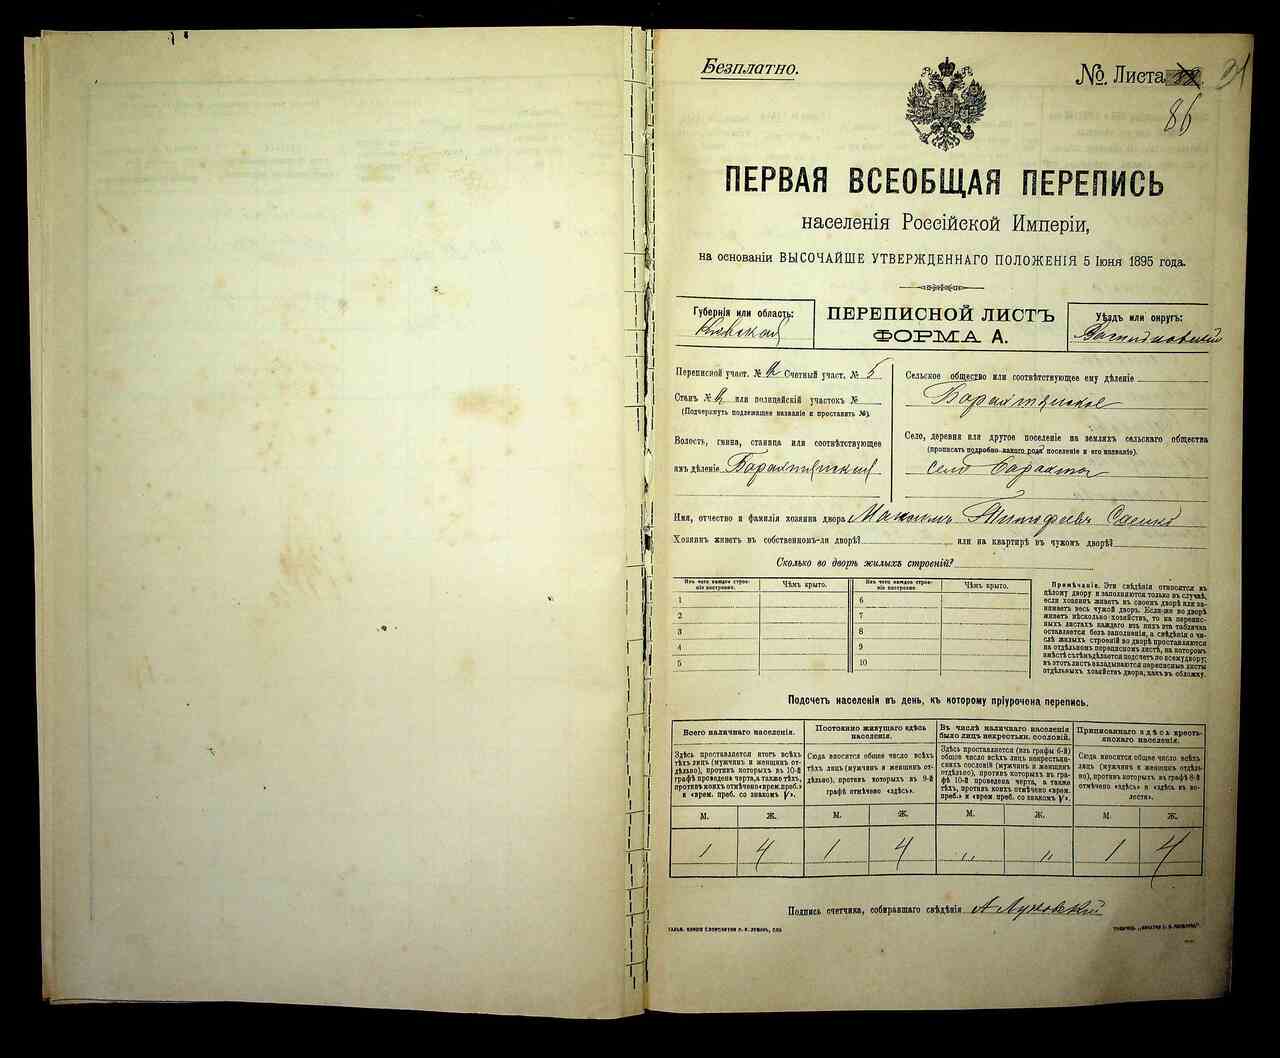 Безплатно.
№. Листа
86
ПЕРВАЯ ВСЕОБЩАЯ ПЕРЕПИСЬ
населенія Россійской Имперіи,
на основаніи ВЫСОЧАЙШЕ УТВЕРЖДЕННАГО ПОЛОЖЕНІЯ 5 Іюня 1895 года.
Губернія или область:
Кіевская
ПЕРЕПИСНОЙ ЛИСТЪ
ФОРМА А.
Уѣздъ или округъ:
Васильковскій
Переписной участ. № 2 Счетный участ. № 5
Станъ № 2 или полицейскій участокъ №
(Подчеркнуть подлежащее названіе и проставить №).
Волость, гмина, станица или соотвѣтствующее
имъ дѣленіе Барахтянская
Сельское общество или соотвѣтствующее ему дѣленіе
Барахтянское
Село, деревня или другое поселеніе на земляхъ сельскаго общества
(прописать подробно какого рода поселеніе и его названіе).
село Барахты
Имя, отчество и фамилія хозяина двора Максимъ Тимофеевъ
Хозяинъ живетъ въ собственномъ-ли дворѣ? или на квартирѣ въ чужомъ дворѣ?
Сколько во дворѣ жилыхъ строеній?
Изъ чего каждое строеніе построено.
Чѣмъ крыто.
Изъ чего каждое строеніе построено.
Чѣмъ крыто.
1
2
3
4
5
6
7
8
9
10
Примѣчаніе. Эти свѣдѣнія относятся къ
цѣлому двору и заполняются только въ случаѣ,
если хозяинъ живетъ въ своемъ дворѣ или занимаетъ
весь чужой дворъ. Если-же во дворѣ
живетъ нѣсколько хозяйствъ, то на переписныхъ
листахъ каждаго изъ нихъ эта табличка
оставляется безъ заполненія, а свѣдѣнія о числѣ
жилыхъ строеній во дворѣ проставляются
на отдѣльномъ переписномъ листѣ, на которомъ
вмѣстѣ съ тѣмъ дѣлается подсчетъ по всему двору;
въ этотъ листъ вкладываются переписные листы
отдѣльныхъ хозяйствъ двора, какъ въ обложку.
Подсчетъ населенія въ день, къ которому пріурочена перепись.
Всего наличнаго населенія.
Здѣсь проставляется итогъ всѣхъ
тѣхъ лицъ (мужчинъ и женщинъ отдѣльно),
противъ которыхъ въ 10-й
графѣ проведена черта, а также тѣхъ,
противъ коихъ отмѣчено «врем. преб.»
и «врем. преб. со знакомъ V».
Постоянно живущаго здѣсь
населенія.
Сюда вносится общее число всѣхъ
тѣхъ лицъ (мужчинъ и женщинъ отдѣльно),
противъ которыхъ въ 9-й
графѣ отмѣчено «здѣсь».
Въ числѣ наличнаго населенія
было лицъ некрестьян. сословій.
Здѣсь проставляется (изъ графы 6-й)
общее число всѣхъ лицъ некрестьянскихъ
сословій (мужчинъ и женщинъ
отдѣльно), противъ которыхъ въ графѣ
10-й проведена черта, а также
тѣхъ, противъ коихъ отмѣчено «врем.
преб.» и «врем. преб. со знакомъ V».
Приписаннаго здѣсь крестьянскаго
населенія.
Сюда вносится общее число всѣхъ
лицъ (мужчинъ и женщинъ отдѣльно),
противъ которыхъ въ графѣ 8-й
отмѣчено «здѣсь» и «здѣсь въ волости».
М. Ж. М. Ж. М. Ж. М. Ж.
1 4 1 4 " " 1 4
Подпись счетчика, собиравшаго свѣдѣнія